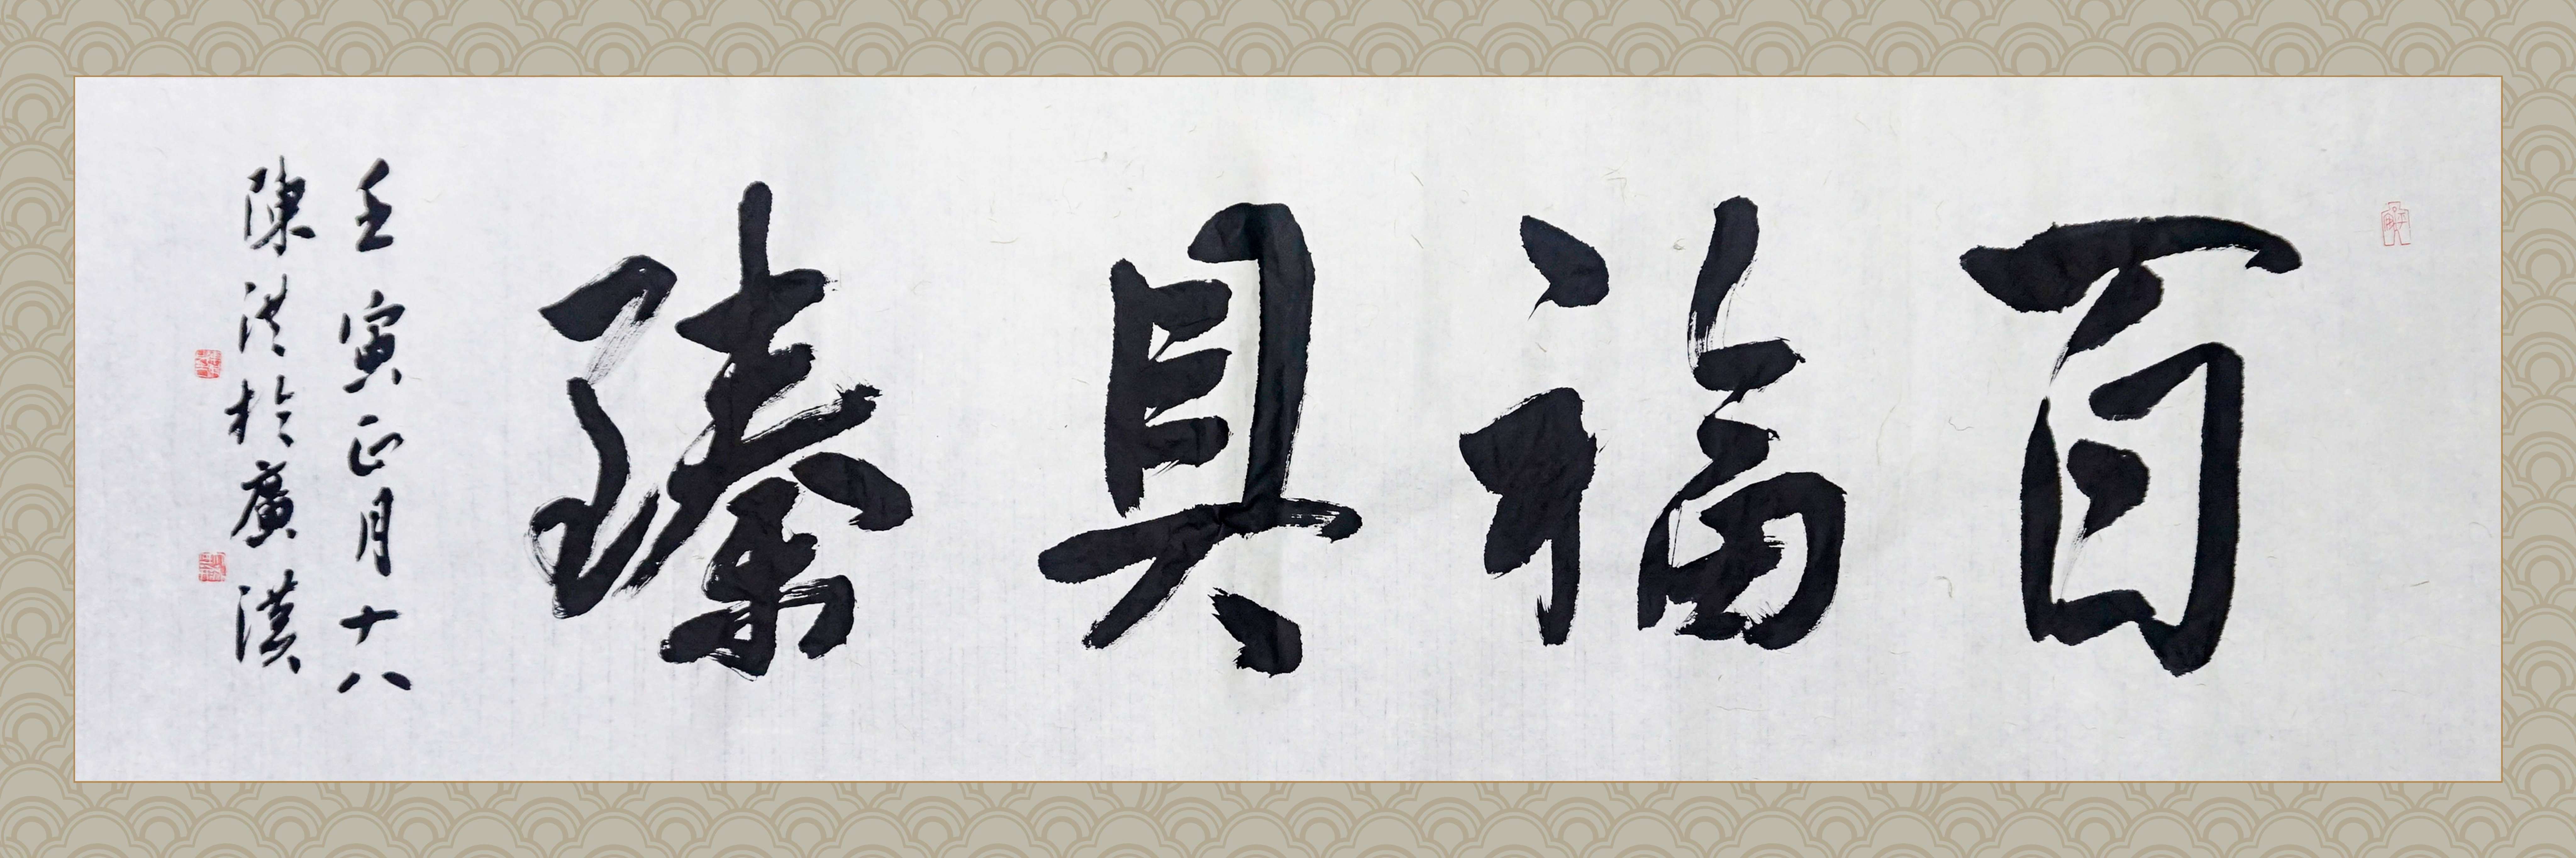 百福具臻
壬寅正月十八
陳洪於廣漢